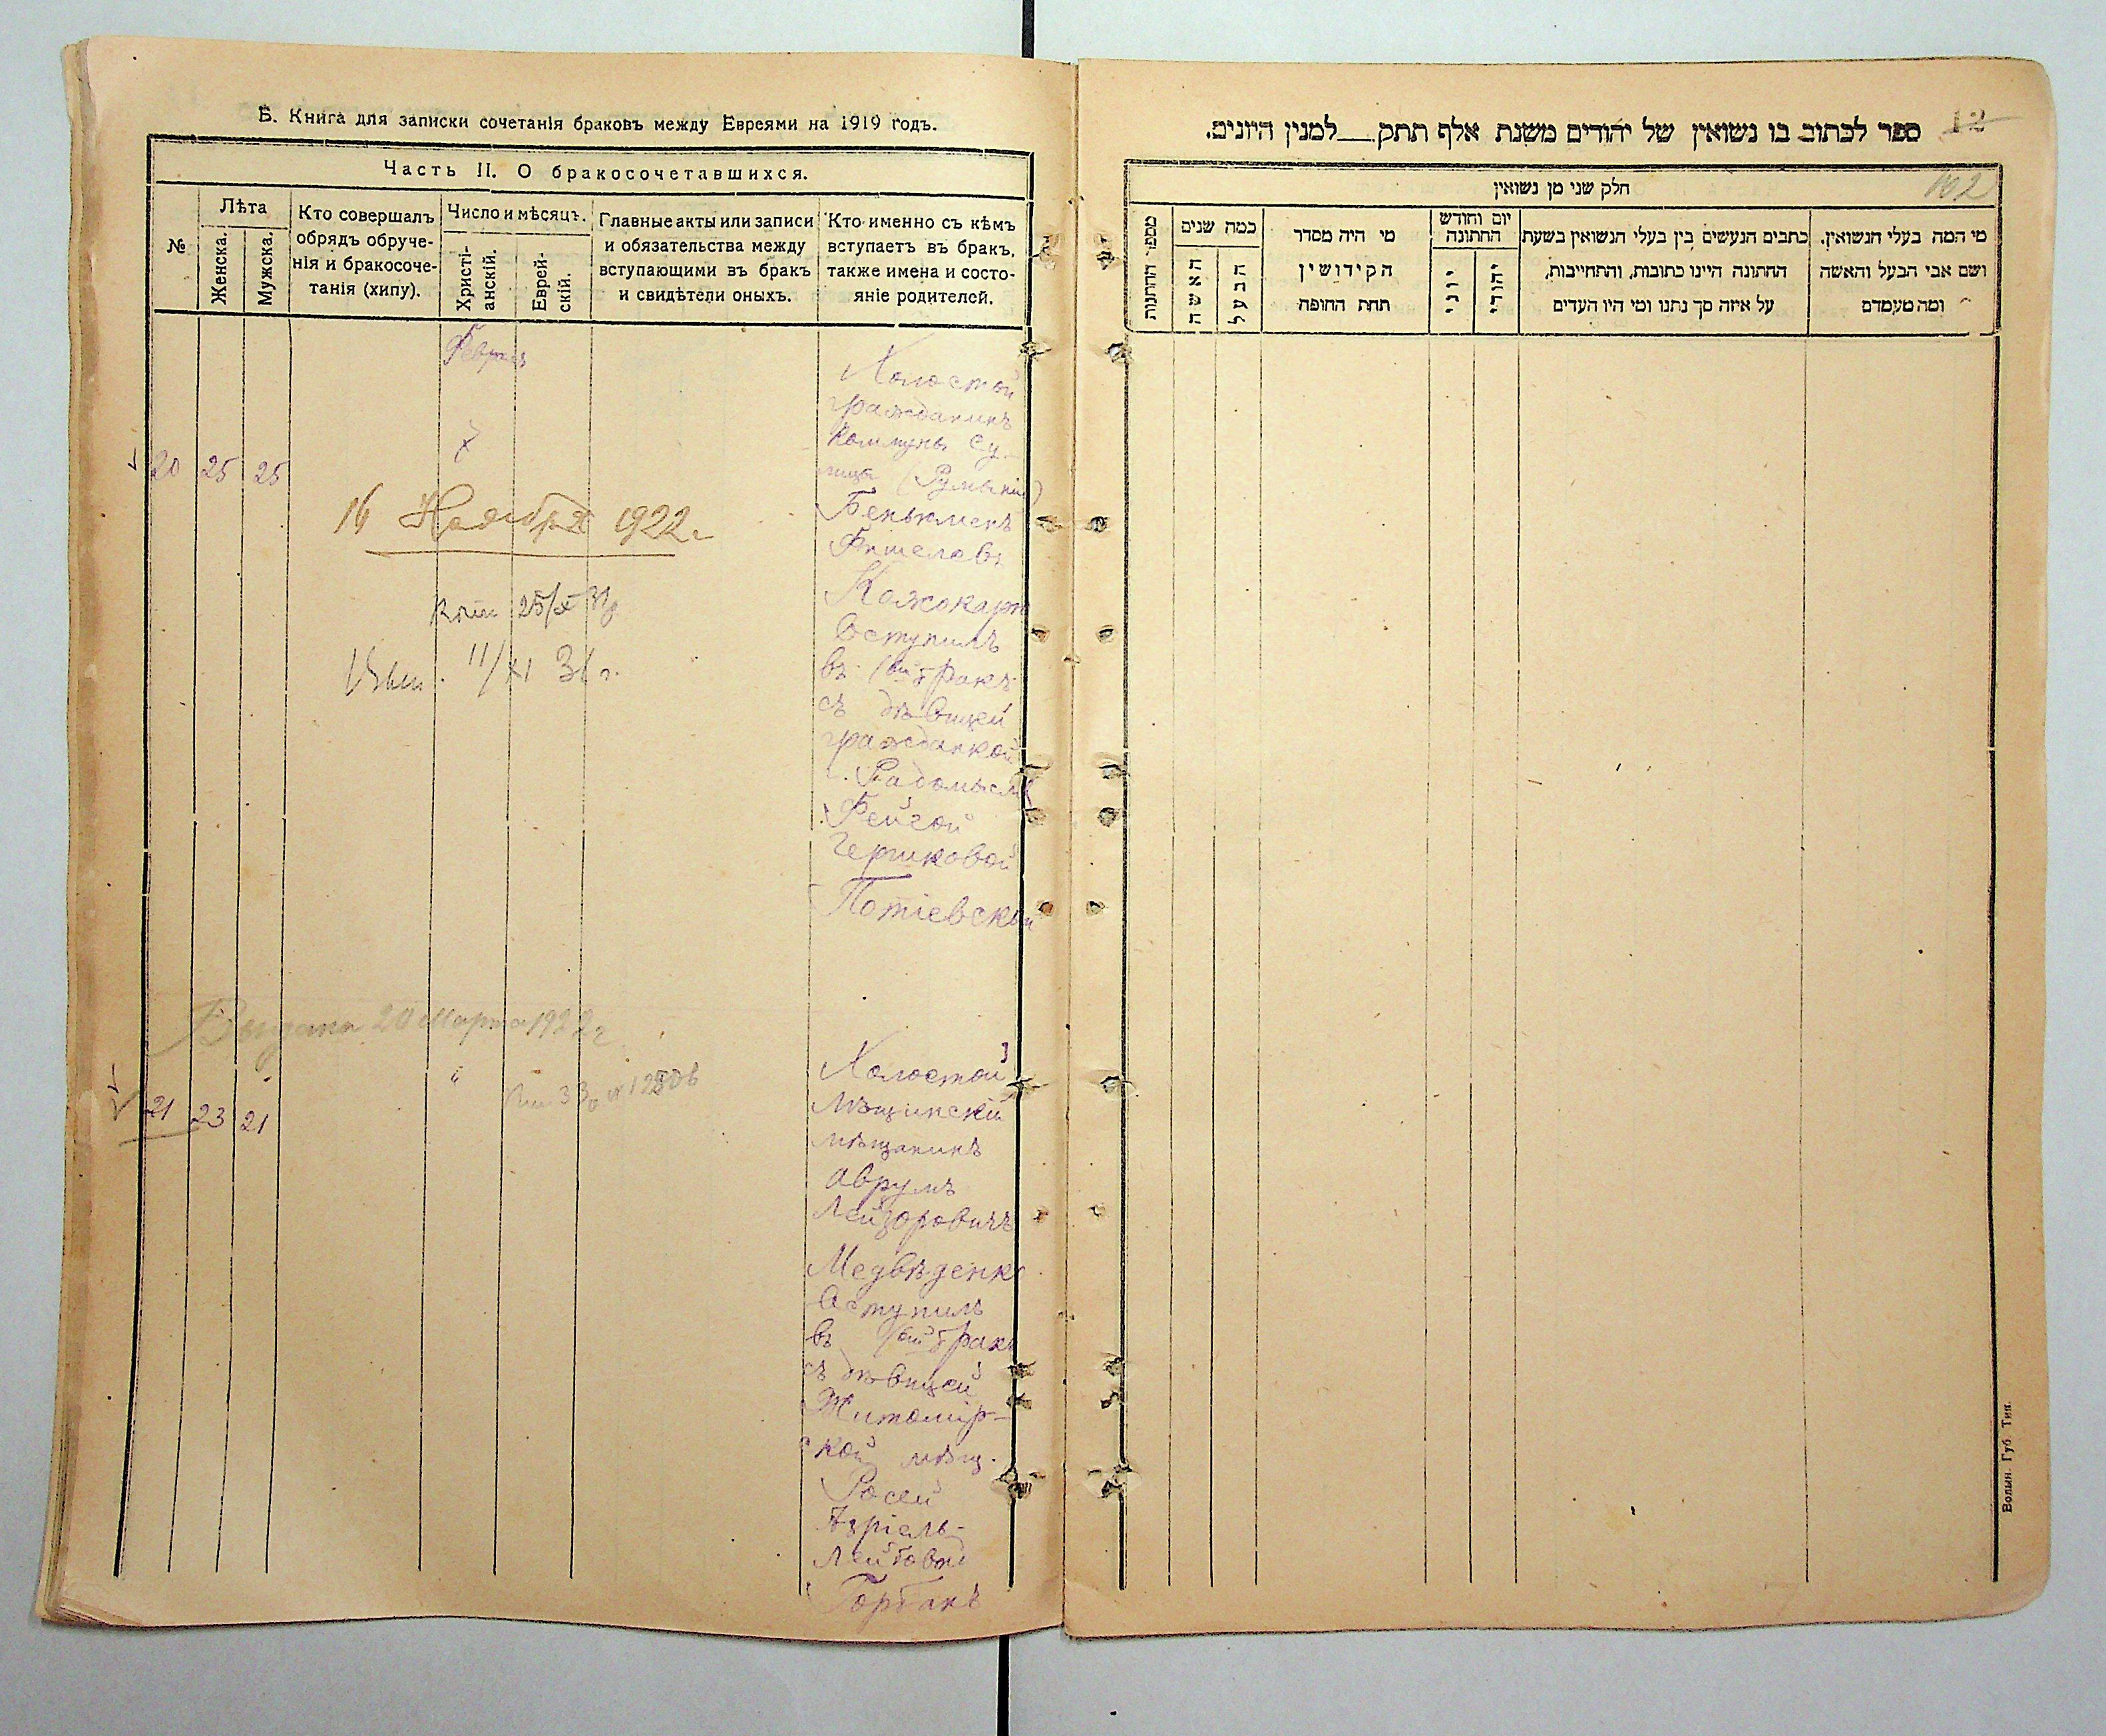 Б. Книга для записки сочетанія браковъ между Евреями на 1919 годъ.
Часть II. О бракосочетавшихся.
№
Лѣта
Женска.
Мужска.
Кто совершалъ
обрядъ обруче-
нія и бракосоче-
танія (хипу).
Число и мѣсяцъ.
Христі-
анскій.
Еврей-
скій.
Главные акты или записи
и обязательства между
вступающими въ бракъ
и свидѣтели оныхъ.
Кто именно съ кѣмъ
вступаетъ въ бракъ,
также имена и состо-
яніе родителей.
20 25 25
7
Холостой
гражданинъ
Коммуны
(Румыніи)
Беньюменъ
Фишелевъ
Кожокарь
вступилъ
въ 1ый бракъ
съ дѣвицей
гражданкой
г. Радомысля
Фейгой
Гершковой
Потіевской
16 Ноября 1922 г.
25/X 31г
11/XI 31 г.
Выдана 20 Марта 1922 г
21 23 21
"
Холостой
мѣщанинъ
Аврумъ
Лейзоровичъ
Медвѣденко
вступилъ
въ 1ый бракъ
съ дѣвицей
Житомір-
ской мѣщ.
Росей
Азріель-
Лейбовой
Горбанъ
12
162
ספר לכתוב בו נשואין של יהודים משנת אלף תתק__למנין היונים.
חלק שני מן נשואין
מספר החתונות
כמה שנים
האשה
הבעל
מי היה מסדר
הקידושין
תחת החופה
יום וחודש
החתונה
יוני
יהודי
כתבים הנעשים בין בעלי הנשואין בשעת
החתונה היינו כתובות, והתחייבות,
על איזה סך נתנו ומי היו העדים
מי המה בעלי הנשואין,
ושם אבי הבעל והאשה
ומה מעמדם
Волын. Губ. Тип.